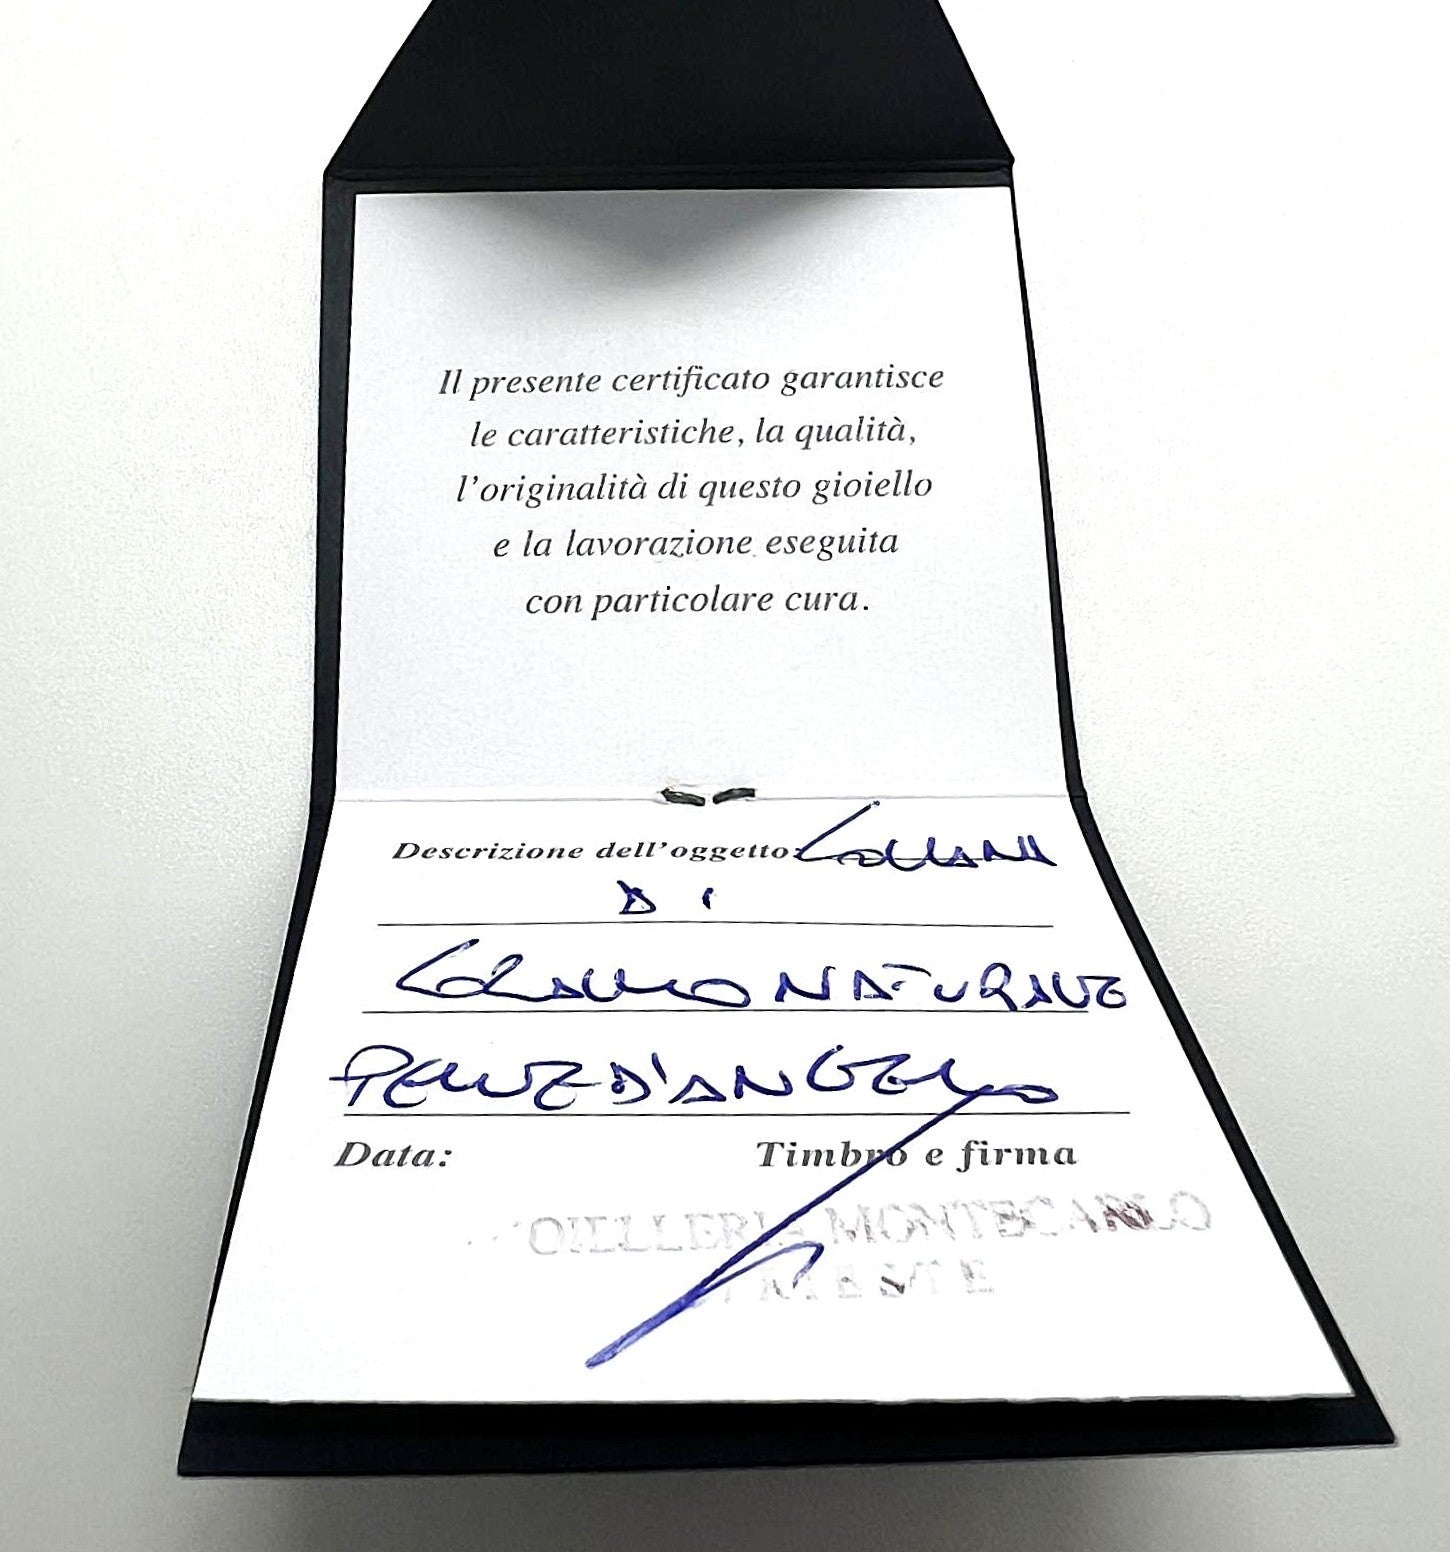 Il presente certificato garantisce
le caratteristiche, la qualità,
l'originalità di questo gioiello
e la lavorazione eseguita
con particolare cura.
Descrizione dell'oggetto: COLLANA
DI
CORALLO NATURALE
PELLE D'ANGELO
Data: Timbro e firma
MONTECARLO